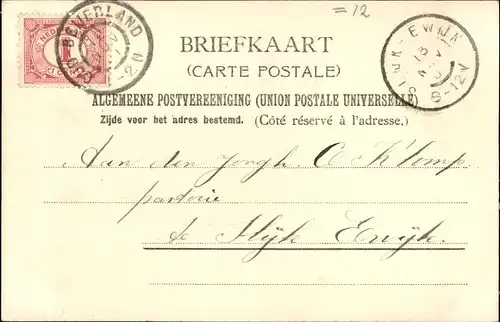 =12
NEDERLAND
BRIEFKAART
(CARTE POSTALE)
ALGEMEENE POSTVEREENIGING (UNION POSTALE UNIVERSELLE)
Zijde voor het adres bestemd. (Côté réservé à l'adresse.)
Aan den Jongh. C. K'lomp
pastorie
te Slijk Ewijk.